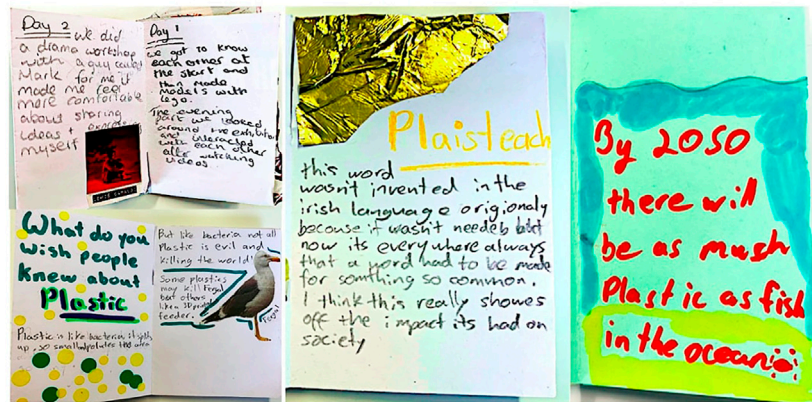 Day 2 we did
a drama workshop
with a guy called
Mark for me it
made me feel
more comfortable
about sharing
ideas +
myself
Day 1
we got to know
each other at
the start and
then made
models with
lego.
The evening
part we looked
around the exhibition
and interacted
with each other
after watching
videos
What do you
wish people
knew about
Plastic
Plastic is like bacteria it splits
up, so small
But like bacteria not all
Plastic is evil and
killing the world!
Some plastics
may kill
but others
like a
feeder.
Plaisteach
this word
wasn't invented in the
irish language origionaly
because it wasn't needed but
now its everywhere always
that a word had to be made
for somthing so common.
I think this really showes
off the impact its had on
society
By 2050
there will
be as mush
Plastic as fish
in the ocean